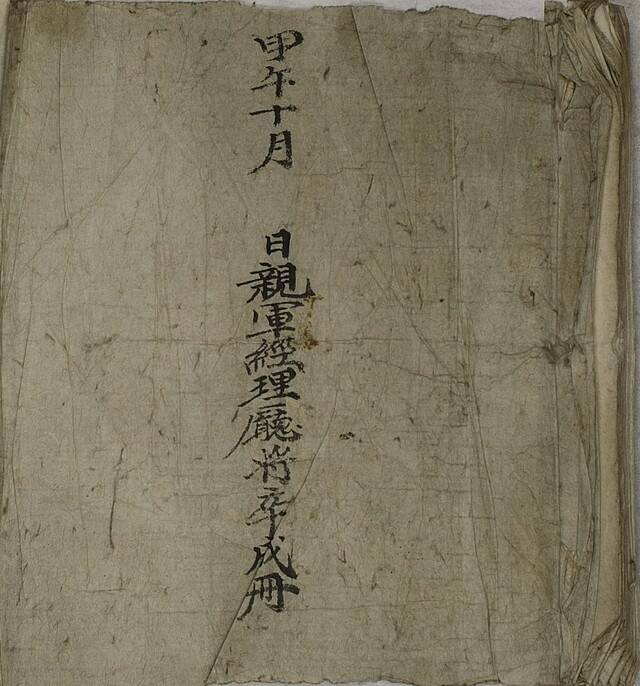 甲午十月　日親軍經理廳將卒成冊